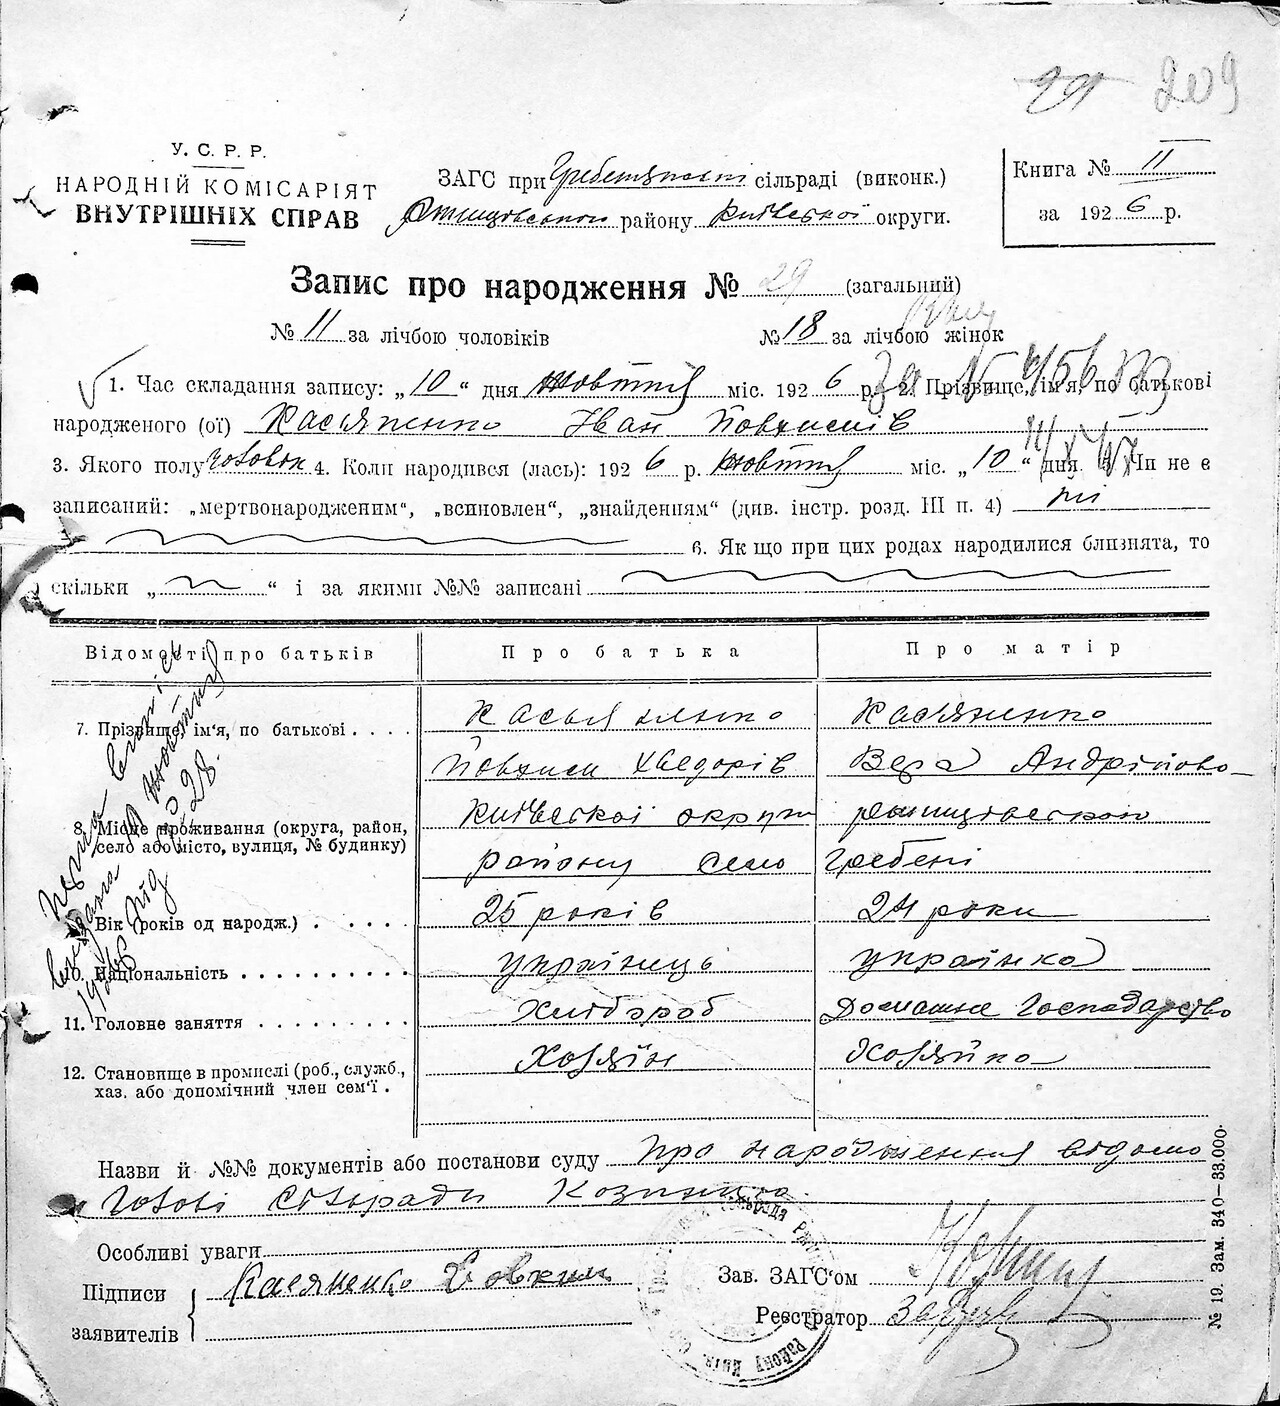 209
У. С. Р. Р.
НАРОДНІЙ КОМІСАРІЯТ
ВНУТРІШНІХ СПРАВ
ЗАГС при сільраді (виконк.)
району Київської округи.
Книга № 11
за 1926 р.
Запис про народження № 29 (загальний)
№ 11 за лічбою чоловіків № 18 за лічбою жінок
1. Час складання запису: „10“ дня жовтня міс. 1926 р. 2. Прізвище, ім'я, по батькові
народженого (ої) Касяненко Іван Йовхимів
3. Якого полу чоловік 4. Коли народився (лась): 1926 р. жовтня міс. „10“ дня. Чи не є
записаний: „мертвонародженим“, „всиновлен“, „знайденням“ (див. інстр. розд. III п. 4) ні
6. Як що при цих родах народилися близнята, то
скільки „ “ і за якими №№ записані
Відомості про батьків Про батька Про матір
7. Прізвище, ім'я, по батькові Касьяненко Касяненко
Йовхим Хведорів Вера Андріпово
8. Місце проживання (округа, район, Київської округи ржищівського
село або місто, вулиця, № будинку) району село Гребені
Вік (років од народж.) 25 років 24 роки
10. Національність українець українка
11. Головне заняття Хлібороб Домашнє Господарство
12. Становище в промислі (роб., служб., Хозяїн Хозяйка
хаз. або допомічний член сем'ї.
Назви й №№ документів або постанови суду Про народження відомо
Голові Сільради
Особливі уваги
Підписи Касяненко Зав. ЗАГС'ом
заявителів Реєстратор
№ 19. Зам. 340—33.000.